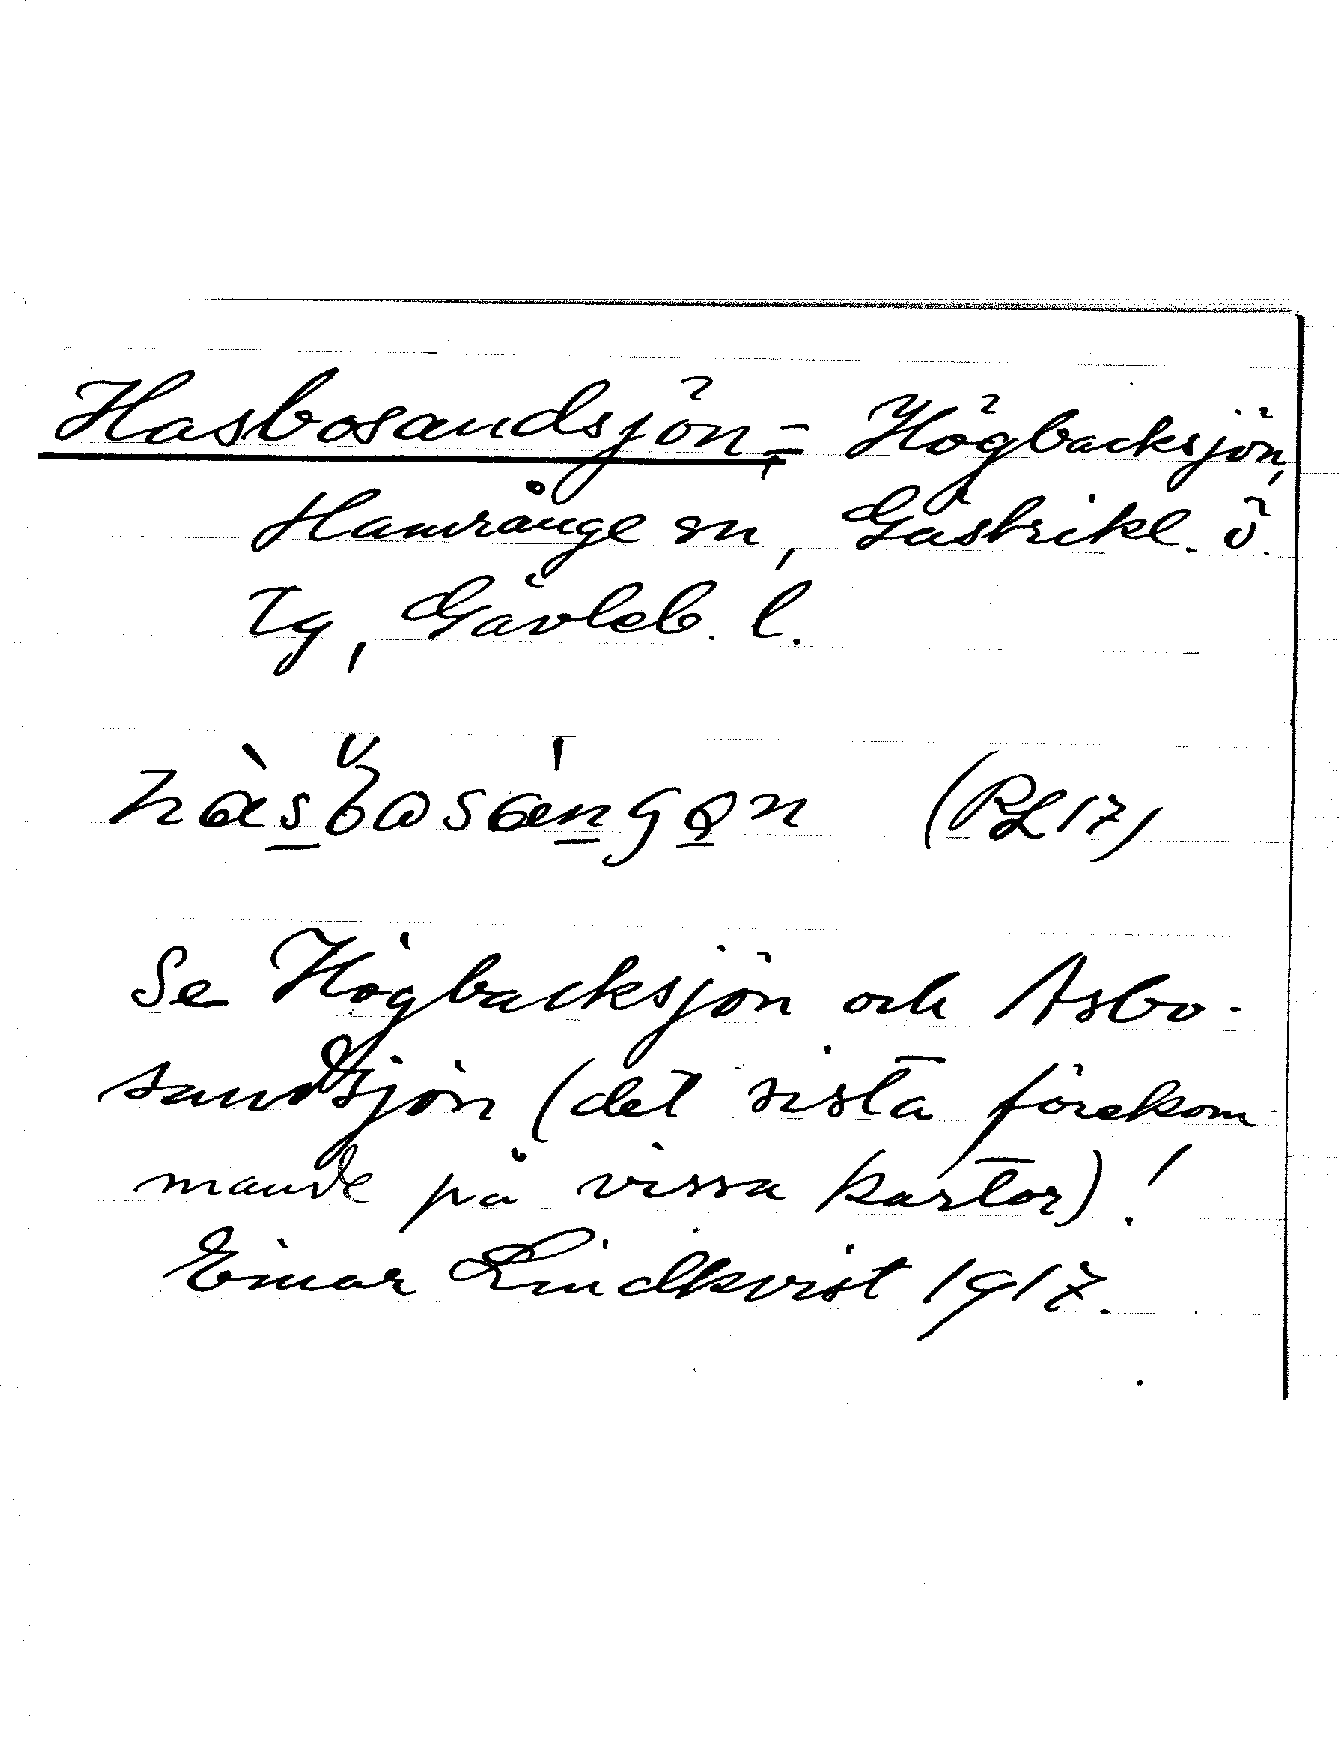 Hasbosandsjön, = Högbacksjön,
Hamrånge sn, Gästrikl. ö
tg, Gävleb. l.
(RL 17)
Se Högbacksjön och Asbo-
sandsjön (det sista förekom
mande på vissa kartor)!
Einar Lindkvist 1917.